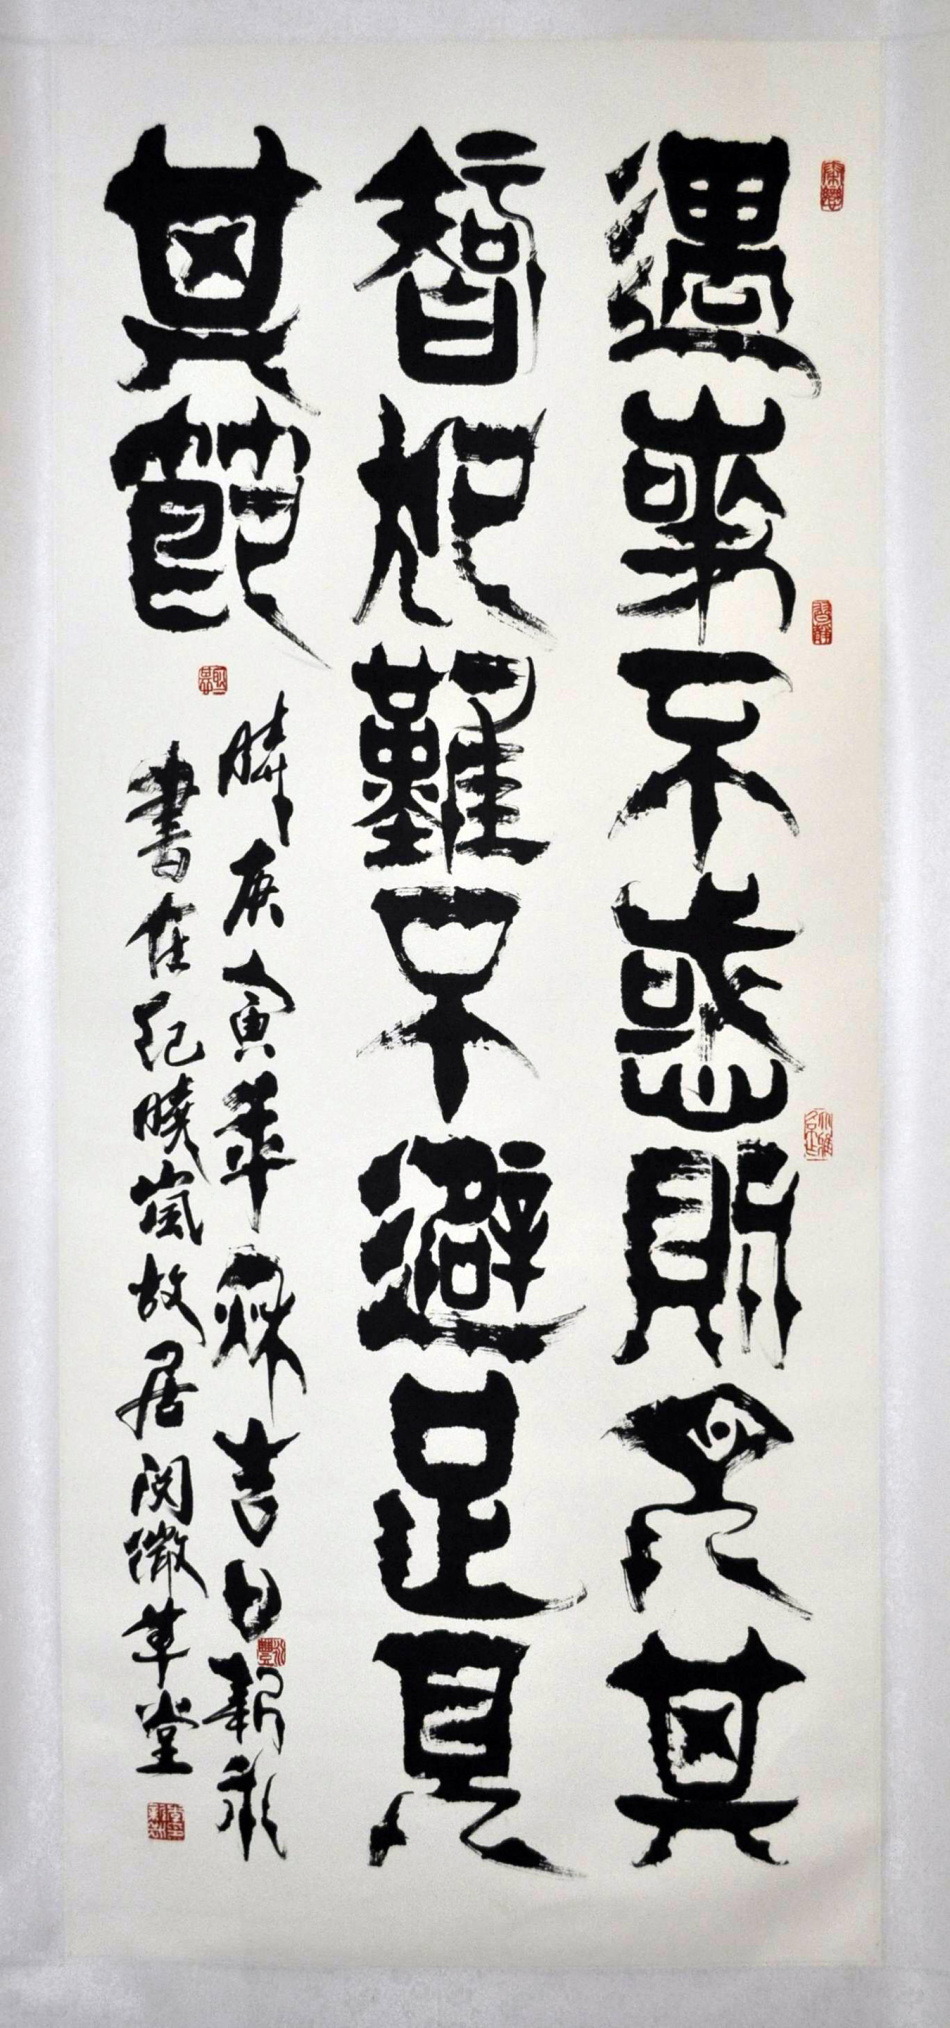 遇事不惑則見其
智犯難不避足見
其節
時庚寅年秌吉日新永
書在紀曉嵐故居閱微草堂